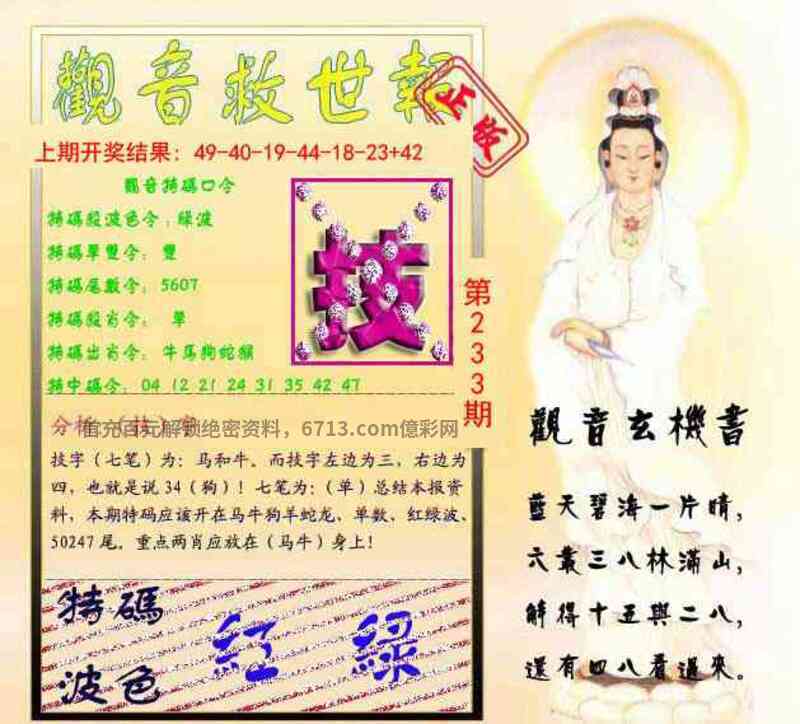 觀音救世報
正版
上期开奖结果：49-40-19-44-18-23+42
觀音特碼口令
特碼段波色令：绿波
特碼單雙令：雙
特碼尾數令：5607
特碼段肖令：單
特碼出肖令：牛马狗蛇猴
特中碼令：04 12 21 24 31 35 42 47
技
第233期
首充百元解锁绝密资料，6713.com億彩网
技字（七笔）为：马和牛。而技字左边为三，右边为
四，也就是说34（狗）！七笔为：（单）总结本报资
料，本期特码应该开在马牛狗羊蛇龙、单数、红绿波、
50247尾。重点两肖应放在（马牛）身上！
特碼
波色
紅 綠
觀音玄機書
藍天碧海一片晴，
六叢三八林滿山，
解得十五與二八，
還有四八看過來。